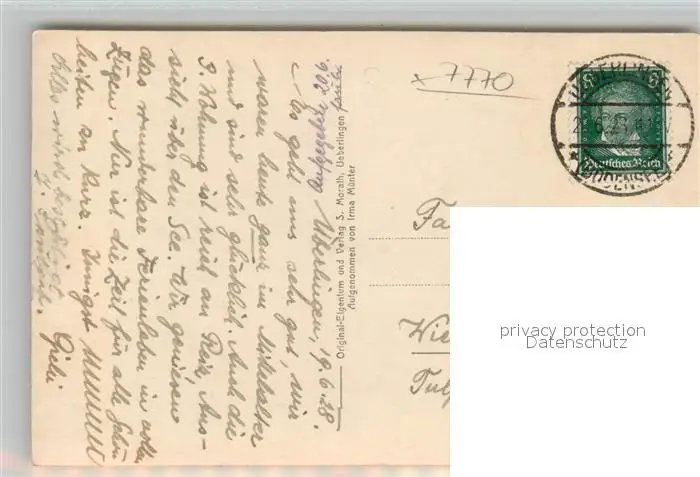 aufgegeben 20.6.
Überlingen, 19.6.28.
Es geht uns sehr gut, wir
waren heute ganz im Mittelalter
und sind sehr glücklich. Auch die
P. Wohnung ist reich an Reiz, Aus-
sicht über den See. Wir genießen
das wunderbare Ferienleben in vollen
Zügen. Nur ist die Zeit für alle Schön-
heiten zu kurz. Innigst
Alles wird
Original-Eigentum und Verlag S. Morath, Ueberlingen
Aufgenommen von Irma Münter
x 7770
Deutsches Reich
Fa
Wie
Tul
privacy protection
Datenschutz